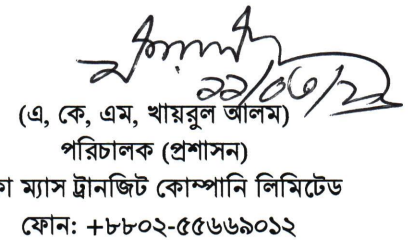 ২২/০৩/২২
(এ, কে, এম, খায়রুল আলম)
পরিচালক (প্রশাসন)
ম্যাস ট্রানজিট কোম্পানি লিমিটেড
ফোন: +৮৮০২-৫৫৬৬৯০১২